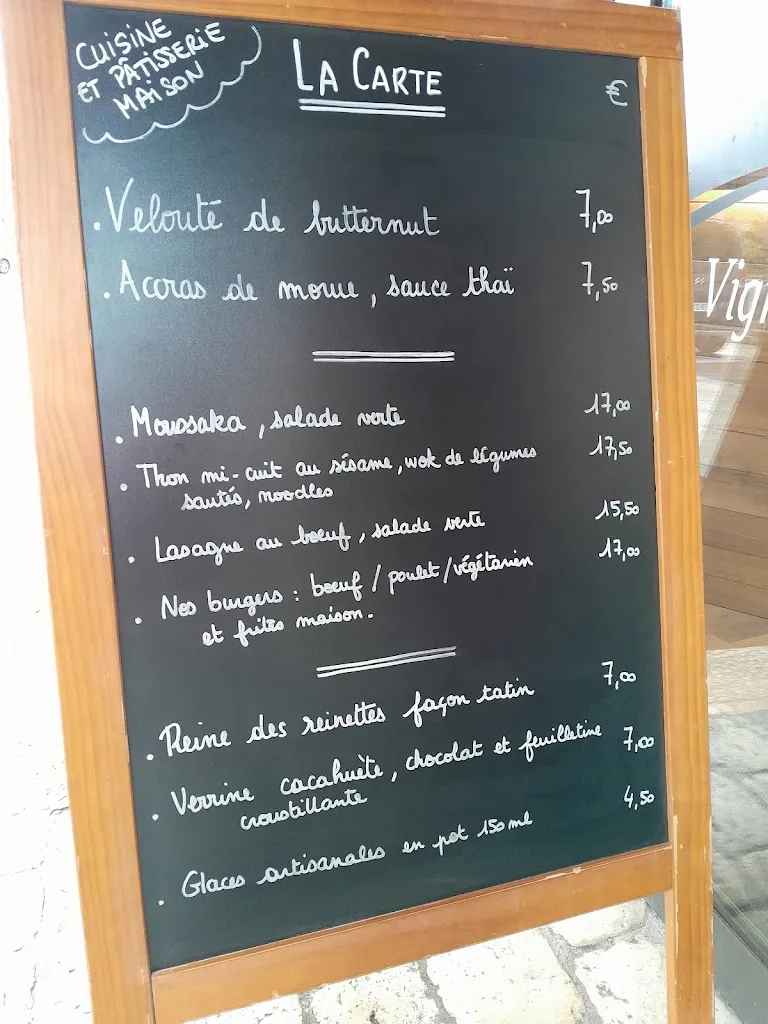 CUISINE
ET PÂTISSERIE
MAISON
LA CARTE
€
. Velouté de butternut 7,00
. Accras de morue, sauce thaï 7,50
. Moussaka, salade verte 17,00
. Thon mi-cuit au sésame, wok de légumes 17,50
sautés, noodles
. Lasagne au boeuf, salade verte 15,50
. Nos burgers : boeuf / poulet / végétarien 17,00
et frites maison.
. Reine des reinettes façon tatin 7,00
. Verrine cacahuète, chocolat et feuilletine 7,00
croustillante
. Glaces artisanales en pot 150 ml 4,50